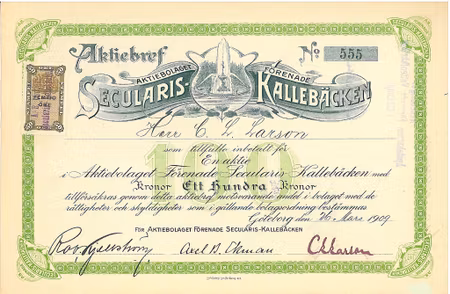 Aktiebref No 555
AKTIEBOLAGET FÖRENADE
SECULARIS-KÄLLEBÄCKEN
Herr C. L. Larson
som tillfullo inbetalt för
En aktie
100
i Aktiebolaget Förenade Secularis Källebäcken med
Kronor Ett Hundra Kronor
tillförsäkras genom detta aktiebref motsvarande andel i bolaget med de
rättigheter och skyldigheter som i gällande bolagsordning bestämmas
Göteborg den 16 Mars 1909.
FÖR AKTIEBOLAGET FÖRENADE SECULARIS-KÄLLEBÄCKEN
Axel B. Ekman CLLarson